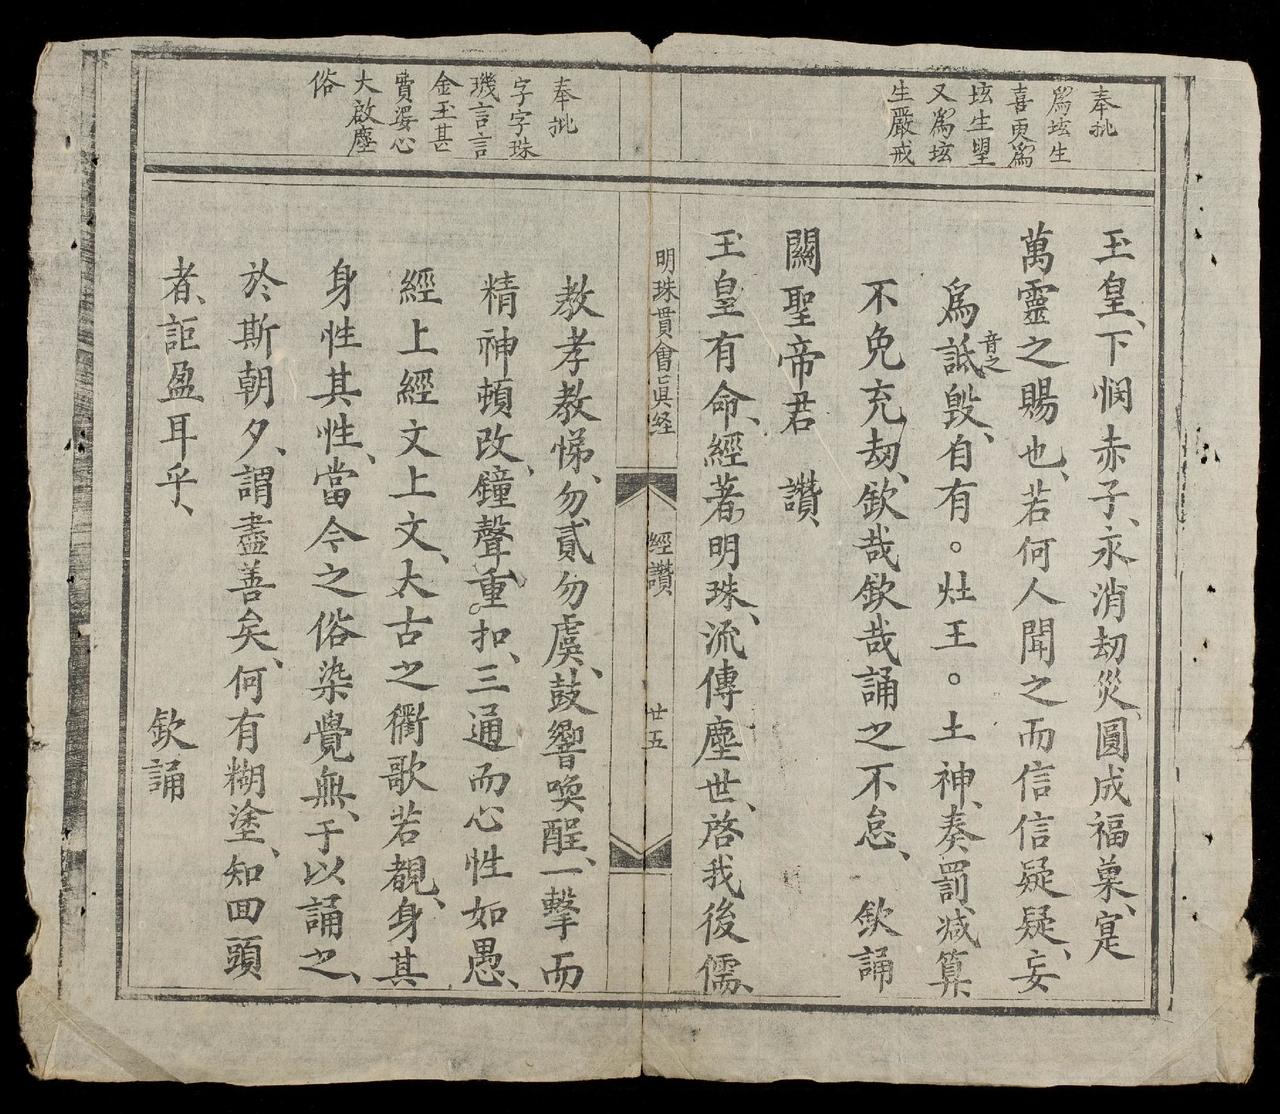 奉批
為生
喜更為
生望
又為
生嚴戒
玉皇、下憫赤子、永消劫災、圓成福菓、寔
萬靈之賜也、若何人聞之而信信疑疑、妄
爲詆毀、自有。灶王。土神、奏罰減算
音之
不免充劫、欽哉欽哉誦之不怠、 欽誦
關聖帝君 讚、
玉皇有命、經著明珠、流傳塵世、啓我後儒、
明珠貫會眞経 經讚 廿五
奉批
字字珠
璣言言
金玉甚
費婆心
大啟塵
俗
教孝教悌、勿貳勿虞、鼓響喚醒、一擊而
精神頓改、鐘聲重扣、三通而心性如愚、
經上經文上文、太古之衢歌若覩、身其
身性其性、當今之俗染覺無、于以誦之、
於斯朝夕、謂盡善矣、何有糊塗、知回頭
者、詎盈耳乎、 欽誦